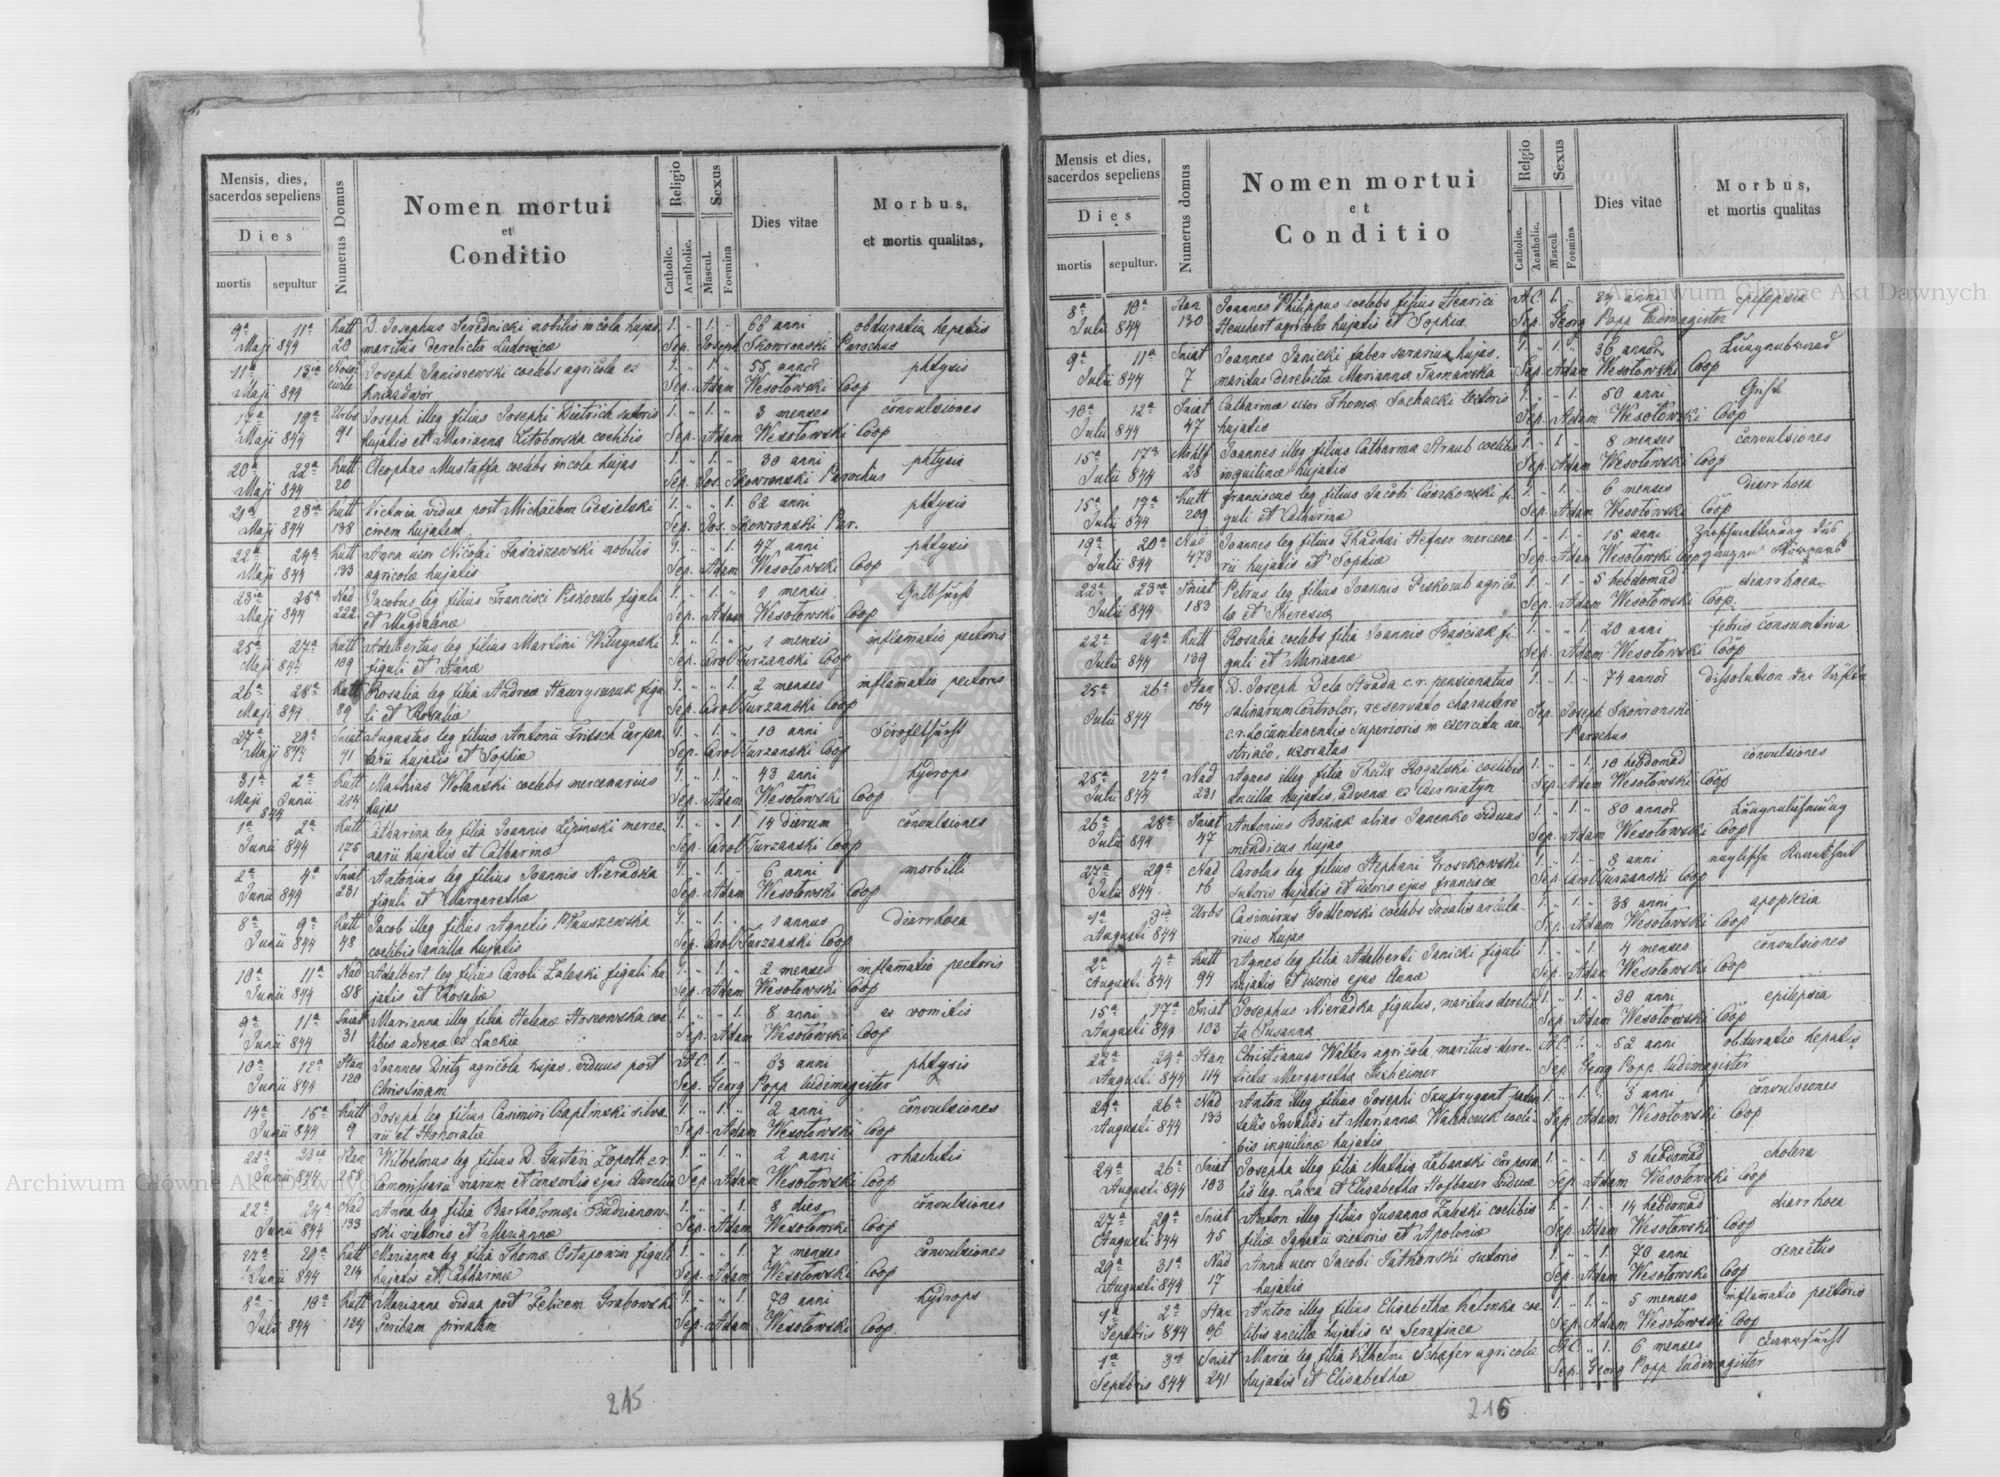 Mensis, dies,
sacerdos sepeliens
Dies
mortis sepultur
Numerus Domus
Nomen mortui
et
Conditio
Religio
Catholic.
Acatholic.
Sexus
Mascul.
Foemina
Dies vitae
Morbus,
et mortis qualitas,
9a 11a Kutt D. Josephus Serednicki nobilis incola hujas 1. „ 1. „ 66 anni obduratio hepatis
Maji 844 20 maritus derelictae Ludovicae Sep. Joseph Skowronski Parochus
11a 13ia Joseph Janiszewski coelebs agricola ex 1. „ 1. „ 55 annor phtysis
Maji 844 Sep. Adam Wesołowski Coop
17a 19a Urbs Joseph illeg filius Josephi Dietrich sutoris 1. „ 1. „ 3 menses convulsiones
Maji 844 91 hujatis et Marianna Litoborska coelibis Sep. Adam Wesołowski Coop
20a 22a Kutt Cleophas Mustaffa coelebs incola hujas 1. „ 1. „ 30 anni phtysis
Maji 844 20 Sep. Jos. Skowronski Parochus
21a 23ia Kutt Victoria vidua post Michaelem Ciesielski 1. „ „ 1. 62 anni phtysis
Maji 844 138 civem hujatem Sep. Jos. Skowronski Par.
22a 24a Kutt Anna uxor Nicolai Faściszewski nobilis 1. „ „ 1. 47 anni phtysis
Maji 844 133 agricolae hujatis Sep. Adam Wesołowski Coop
23ia 25a Nad Jacobus leg filius Francisci Piskozub figuli 1. „ 1. „ 1 mensis Gelbsucht
Maji 844 222 et Magdalenae Sep. Adam Wesołowski Coop
25a 27a Kutt Adalbertus leg filius Martini Wilczynski 1. „ 1. „ 1 mensis inflamatio pectoris
Maji 844 109 figuli et Annae Sep. Carol Turzanski Coop
26a 28a Kutt Rosalia leg filia Andreae Hawryszczuk figu 1. „ „ 1. 2 menses inflamatio pectoris
Maji 844 89 li et Rosaliae Sep. Carol Turzanski Coop
27a 29a Sniat Augustus leg filius Antonii Fritsch carpen. 1. „ 1. „ 10 anni Scrofelsucht
Maji 844 41 tarii hujatis et Sophiae Sep. Carol Turzanski Coop
31a 2a Kutt Mathias Wolanski coelebs mercenarius 1. „ 1. „ 43 anni hydrops
Maji Junii 214 hujas Sep. Adam Wesołowski Coop
844
1a 2a Kutt Catharina leg filia Joannis Lipinski merce- 1. „ „ 1. 14 dierum convulsiones
Junii 844 175 narii hujatis et Catharinae Sep. Carol Turzanski Coop
2a 4a Sniat Antonius leg filius Joannis Nieradka 1. „ 1. „ 6 anni morbilli
Junii 844 231 figuli et Margarethae Sep. Adam Wesołowski Coop
8a 9a Kutt Jacob illeg filius Agnetis 1. „ 1. „ 1 annus Diarrhoea
Junii 844 48 coelibis ancillae hujatis Sep. Carol Turzanski Coop
10a 11a Nad Adalbert leg filius Caroli Zaleski figuli hu 1. „ 1. „ 2 menses inflamatio pectoris
Junii 844 jatis et Rosaliae Sep. Adam Wesołowski Coop
9a 11a Sniat Marianna illeg filia Helenae coe 1. „ „ 1. 8 anni ex vomitis
Junii 844 31 libis advenae ex Lackie Sep. Adam Wesołowski Coop
10a 12a Stan Joannes Dietz agricola hujas, viduus post A.C. 1. „ 63 anni phtysis
Junii 844 120 Christinam Sep. Georg Popp ludimagister
14a 16a Kutt Joseph leg filius Casimiri Czaplinski silva 1. „ 1. „ 2 anni convulsiones
Junii 844 9 rii et Honoratae Sep. Adam Wesołowski Coop
22a 23ia Stan Wilhelmus leg filius D. Gustavi Zopoth c.r. 1. „ 1. „ 2 anni rhachitis
Junii 844 258 Commissarii viarum et consortis ejus Aureliae Sep. Adam Wesołowski Coop
22a 24a Nad Anna leg filia Bartholomaei Budzianow- 1. „ „ 1. 8 dies convulsiones
Junii 844 133 ski vietoris et Mariannae Sep. Adam Wesołowski Coop
27a 29a Kutt Marianna leg filia Thomae Ostapowicz figuli 1. „ „ 1. 7 menses convulsiones
Junii 844 214 hujatis et Catharinae Sep. Adam Wesołowski Coop
8a 10a Kutt Marianna vidua post Felicem Grabowski 1. „ „ 1. 70 anni hydrops
Julii 844 124 scribam privatum Sep. Adam Wesołowski Coop.
215
Mensis et dies,
sacerdos sepeliens
Dies
mortis sepultur.
Numerus domus
Nomen mortui
et
Conditio
Relgio
Catholic.
Acatholic.
Sexus
Mascul.
Foemina
Dies vitae
Morbus,
et mortis qualitas
8a 10a Stan Joannes Philippus coelebs filius Henrici A.C. 1. „ 24 anni epilepsia
Julii 844 130 Heuchert agricolae hujatis et Sophiae Sep. Georg Popp ludimagister
9a 11a Sniat Joannes Janicki faber serarius hujas, 1. „ 1. „ 36 annor Lungenbrand
Julii 844 7 maritus derelictae Mariannae Tarnawska Sep. Adam Wesołowski Coop
10a 12a Sniat Catharina uxor Thomae Sochacki textoris 1. „ „ 1. 50 anni Gicht
Julii 844 47 hujatis Sep. Adam Wesołowski Coop
15a 17a Mrhlf Joannes illeg filius Catharinae Straub coelibis 1. „ 1. „ 8 menses convulsiones
Julii 844 28 inquilinae hujatis Sep. Adam Wesołowski Coop
15a 17a Kutt Franciscus leg filius Jacobi Cieszkowski fi 1. „ 1. „ 6 menses diarrhoea
Julii 844 209 guli et Catharinae Sep. Adam Wesołowski Coop
19a 20a Nad Joannes leg filius Thaddaei Hefner mercena 1. „ 1. „ 15 anni
Julii 844 473 rii hujatis et Sophiae Sep. Adam Wesołowski Coop
22a 23ia Sniat Petrus leg filius Joannis Piskozub agrico 1. „ 1. „ 5 hebdomad diarrhoea
Julii 844 183 lae et Theresiae Sep. Adam Wesołowski Coop.
22a 24a Kutt Rosalia coelebs filia Joannis Baściak fi 1. „ „ 1. 20 anni febris consumtiva
Julii 844 139 guli et Mariannae Sep. Adam Wesołowski Coop
25a 26a Stan D. Joseph Dela Strada c.r. pensionatus 1. „ 1. „ 74 annor dissolution der Säfte
Julii 844 164 salinarum Controlor, reservato charactere Sep. Joseph Skowronski
c.r. Locumtenentis superioris in exercitu au- Parochus
striaco, uxoratus
25a 27a Nad Agnes illeg filia Theclae Rogalski coelibis 1. „ „ 1. 10 hebdomad convulsiones
Julii 844 231 ancillae hujatis, advenae ex Czerniatyn Sep. Adam Wesołowski Coop
26a 28a Sniat Antonius Boziak alias Janenko viduus 1. „ 1. „ 80 annor Lungenlähmung
Julii 844 47 mendicus hujas Sep. Adam Wesołowski Coop
27a 29a Nad Carolus leg filius Stephani Groszkowski 1. „ 1. „ 8 anni englische Krankheit
Julii 844 16 sutoris hujatis et uxoris ejus Franciscae Sep. Carol Turzanski Coop
1a 3ia Urbs Casimirus Godlewski coelebs arcula- 1. „ 1. „ 38 anni apoplexia
Augusti 844 rius hujas Sep. Adam Wesołowski Coop
2a 4a Kutt Agnes leg filia Adalberti Janicki figuli 1. „ „ 1. 4 menses convulsiones
Augusti 844 94 hujatis et uxoris ejus Annae Sep. Adam Wesołowski Coop
15a 17a Sniat Josephus Nieradka figulus, maritus derelic 1. „ 1. „ 30 anni epilepsia
Augusti 844 103 tae Susannae Sep. Adam Wesołowski Coop
22a 24a Stan Christianus Walter agricola, maritus dere- A.C. 1. „ 52 anni obduratio hepatis
Augusti 844 114 lictae Margaretha Sep. Georg Popp ludimagister
24a 26a Nad Anton illeg filius Josephi Szufrygant 1. „ 1. „ 3 anni convulsiones
Augusti 844 133 Invalidi et Mariannae coeli- Sep. Adam Wesołowski Coop
bis inquilinae hujatis
24a 26a Sniat Josepha illeg filia Mathiae Labanski corpora 1. „ „ 1. 3 hebdomad cholera
Augusti 844 103 lis leg. Lucca et Elisabetha Hofbauer viduae Sep. Adam Wesołowski Coop
27a 29a Sniat Anton illeg filius Susannae Zaleski coelibis 1. „ 1. „ 14 hebdomad diarrhoea
Augusti 844 45 filiae Ignatii vietoris et Apoloniae Sep. Adam Wesołowski Coop
29a 31a Nad Anna uxor Jacobi Fatkowski sutoris 1. „ „ 1. 70 anni senectus
Augusti 844 17 hujatis Sep. Adam Wesołowski Coop
1a 2a Stan Anton illeg filius Elisabethae Kaleska coe- 1. „ 1. „ 5 menses inflamatio pectoris
Septbris 844 96 libis ancillae hujatis ex Serafince Sep. Adam Wesołowski Coop
1a 3ia Sniat Maria leg filia Wilhelmi Schäfer agricolae A.C. „ 1. 6 menses
Septbris 844 241 hujatis et Elisabethae Sep. Georg Popp ludimagister
216
Archiwum Główne Akt Dawnych
Archiwum Główne Akt Dawnych